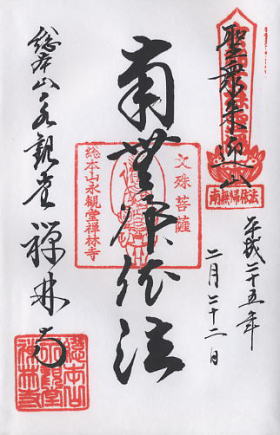 聖衆来迎山
平成二十五年
二月二十二日
南無帰依法
文殊菩薩
総本山永観堂禅林寺
南無帰依法
総本山永観堂
禅林寺